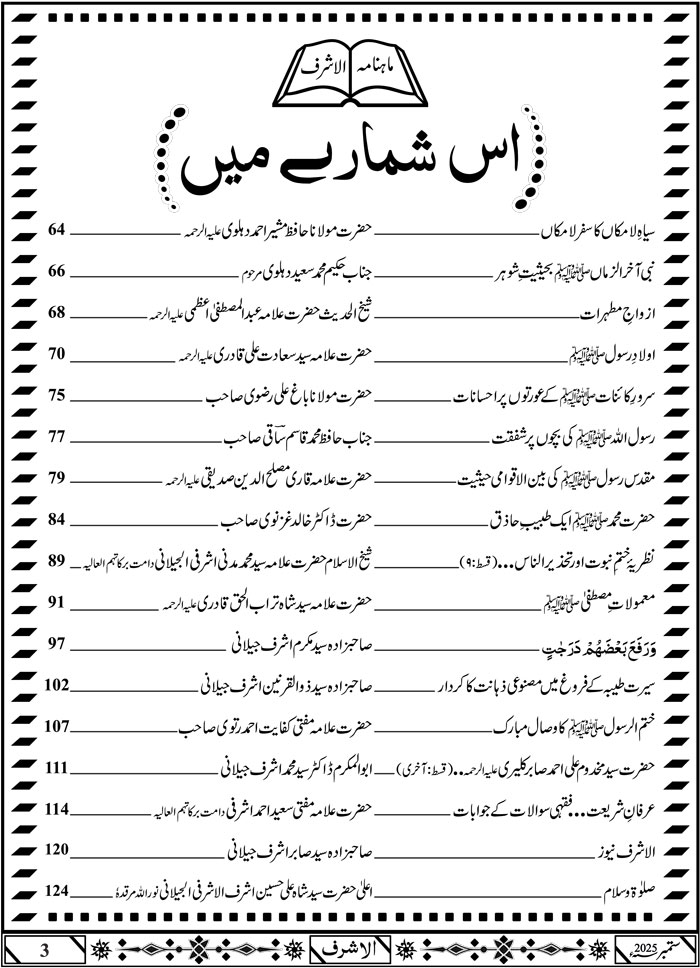 ماہنامہ الاشرف
اس شمارے میں
سیاہِ لامکاں کا سفر لامکاں حضرت مولانا حافظ مشیر احمد دہلوی علیہ الرحمہ 64
نبی آخر الزماں ﷺ بحیثیتِ شوہر جناب حکیم محمد سعید دہلوی مرحوم 66
ازواجِ مطہرات شیخ الحدیث حضرت علامہ عبدالمصطفیٰ اعظمی علیہ الرحمہ 68
اولادِ رسول ﷺ حضرت علامہ سید سعادت علی قادری علیہ الرحمہ 70
سرورِ کائنات ﷺ کے عورتوں پر احسانات حضرت مولانا باغ علی رضوی صاحب 75
رسول اللہ ﷺ کی بچوں پر شفقت جناب حافظ محمد قاسم ساقی صاحب 77
مقدس رسول ﷺ کی بین الاقوامی حیثیت حضرت علامہ قاری مصلح الدین صدیقی علیہ الرحمہ 79
حضرت محمد ﷺ ایک طبیبِ حاذق حضرت ڈاکٹر خالد غزنوی صاحب 84
نظریۂ ختم نبوت اور تحذیر الناس... (قسط:۹) شیخ الاسلام حضرت علامہ سید محمد مدنی اشرفی الجیلانی دامت برکاتہم العالیہ 89
معمولاتِ مصطفیٰ ﷺ حضرت علامہ سید شاہ تراب الحق قادری علیہ الرحمہ 91
وَرَفَعَ بَعْضَهُمْ دَرَجٰتٍ صاحبزادہ سید مکرم اشرف جیلانی 97
سیرت طیبہ کے فروغ میں مصنوعی ذہانت کا کردار صاحبزادہ سید ذوالقرنین اشرف جیلانی 102
ختم الرسول ﷺ کا وصال مبارک حضرت علامہ مفتی کفایت احمد رتوی صاحب 107
حضرت سید مخدوم علی احمد صابر کلیری علیہ الرحمہ... (قسط: آخری) ابوالمکرم ڈاکٹر سید محمد اشرف جیلانی 111
عرفانِ شریعت... فقہی سوالات کے جوابات حضرت علامہ مفتی سعید احمد اشرفی دامت برکاتہم العالیہ 114
الاشرف نیوز صاحبزادہ سید صابر اشرف جیلانی 120
صلوٰۃ و سلام اعلیٰ حضرت سید شاہ علی حسین اشرف الاشرفی الجیلانی نور اللہ مرقدہٗ 124
ستمبر 2025ء الاشرف 3